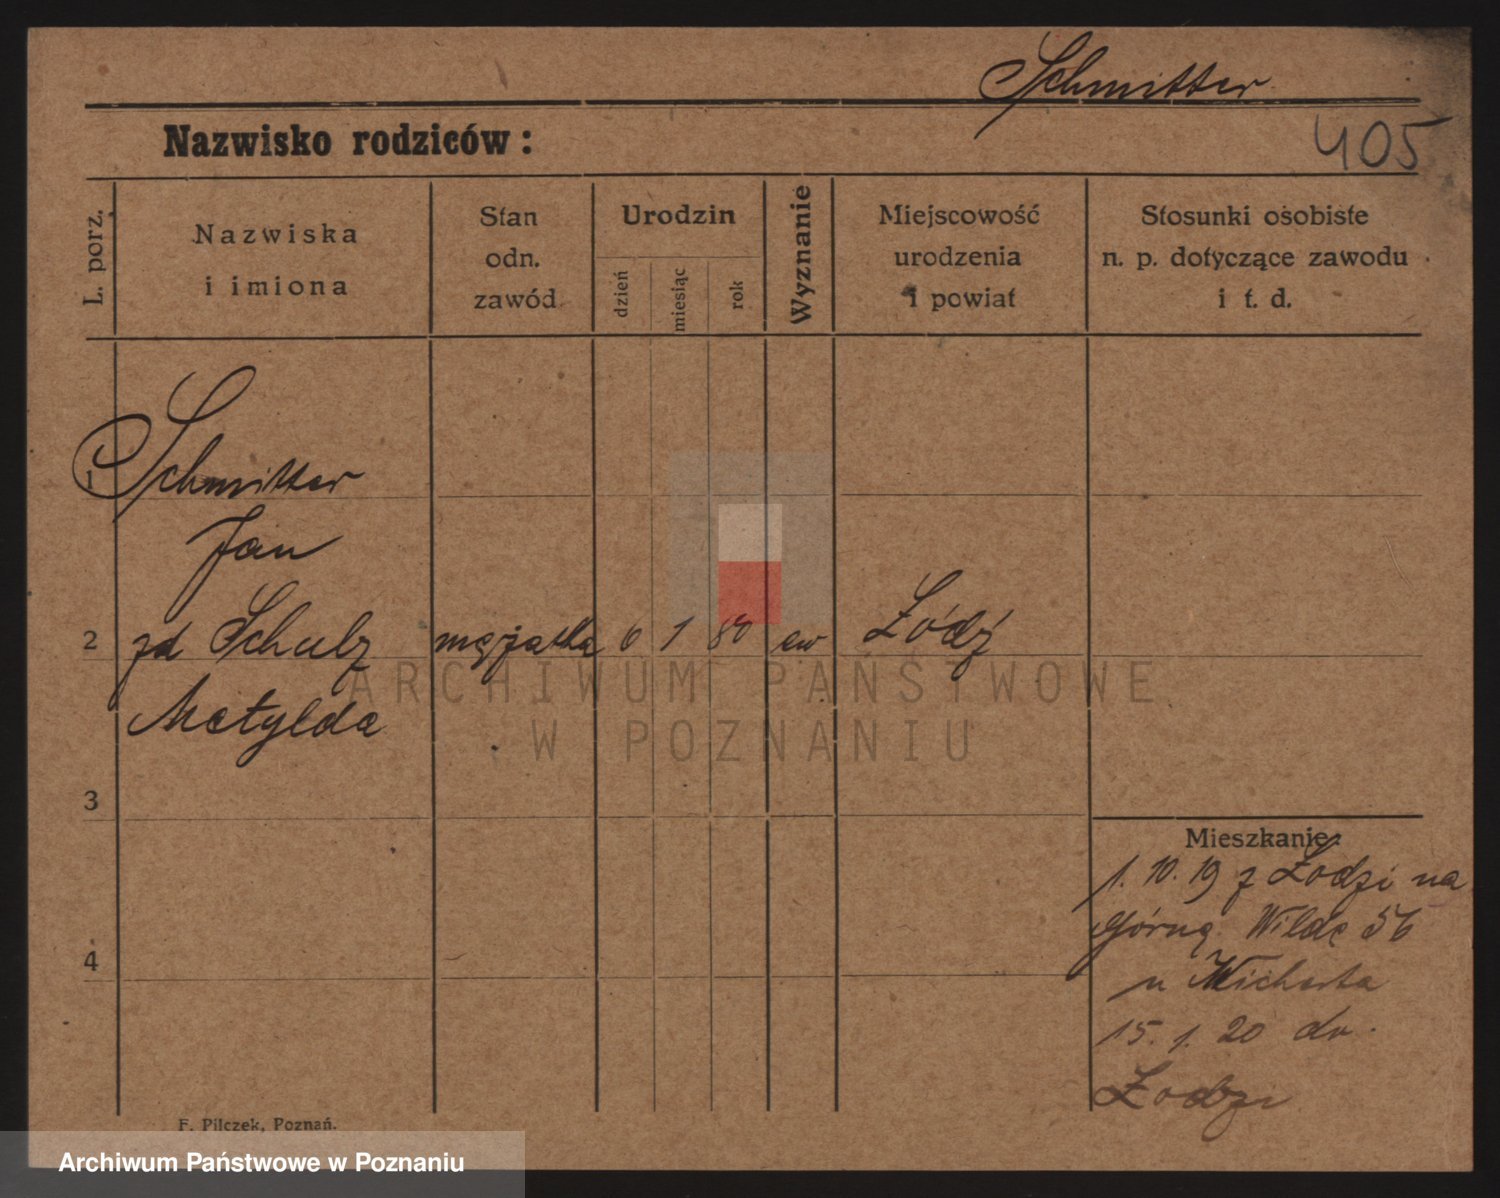 Schmitter
Nazwisko rodziców:
405
L. porz.
Nazwiska
i imiona
Stan
odn.
zawód
Urodzin
dzień
miesiąc
rok
Wyznanie
Miejscowość
urodzenia
i powiat
Stosunki osobiste
n. p. dotyczące zawodu
i t. d.
1 Schmitter
Jan
2 zd Schulz mężatka 6 1 80 ew Łódź
Matylda
3
4
Mieszkanie:
1. 10. 19 z Łodzi na
Górną Wildę 56
u Wicherta
15. 1. 20 do
Łodzi
F. Pilczek, Poznań.
ARCHIWUM PAŃSTWOWE
W POZNANIU
Archiwum Państwowe w Poznaniu